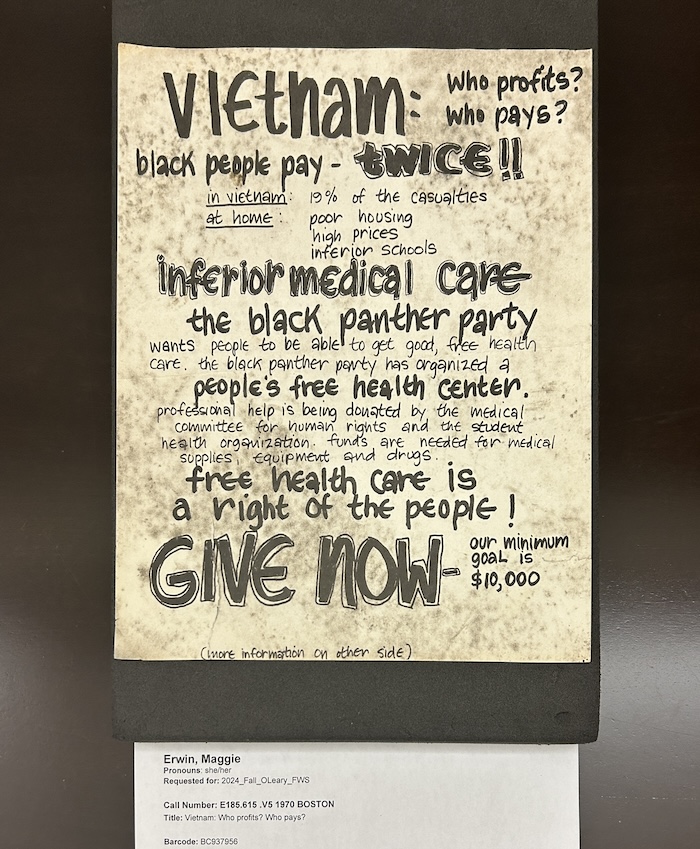 Vietnam: who profits?
who pays?
black people pay - twice!!
in vietnam: 19% of the casualties
at home: poor housing
high prices
inferior schools
inferior medical care
the black panther party
wants people to be able to get good, free health
care. the black panther party has organized a
people's free health center.
professional help is being donated by the medical
committee for human rights and the student
health organization. funds are needed for medical
supplies, equipment and drugs.
free health care is
a right of the people!
GIVE NOW- our minimum
goal is
$10,000
(more information on other side)
Erwin, Maggie
Pronouns: she/her
Requested for: 2024_Fall_OLeary_FWS
Call Number: E185.615 .V5 1970 BOSTON
Title: Vietnam: Who profits? Who pays?
Barcode: BC937956